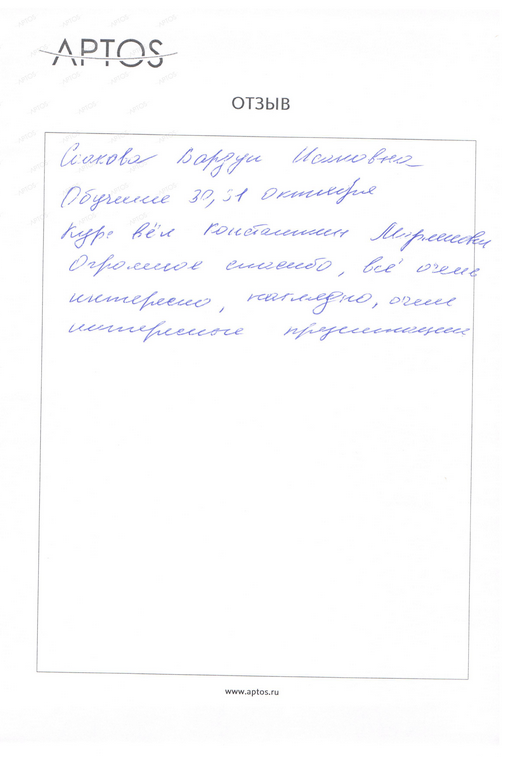 APTOS
ОТЗЫВ
Вардуи Исаковна
Обучение 30, 31 октября
Курс вёл Константин
Огромное спасибо, всё очень
интересно, наглядно, очень
интересные презентации
www.aptos.ru